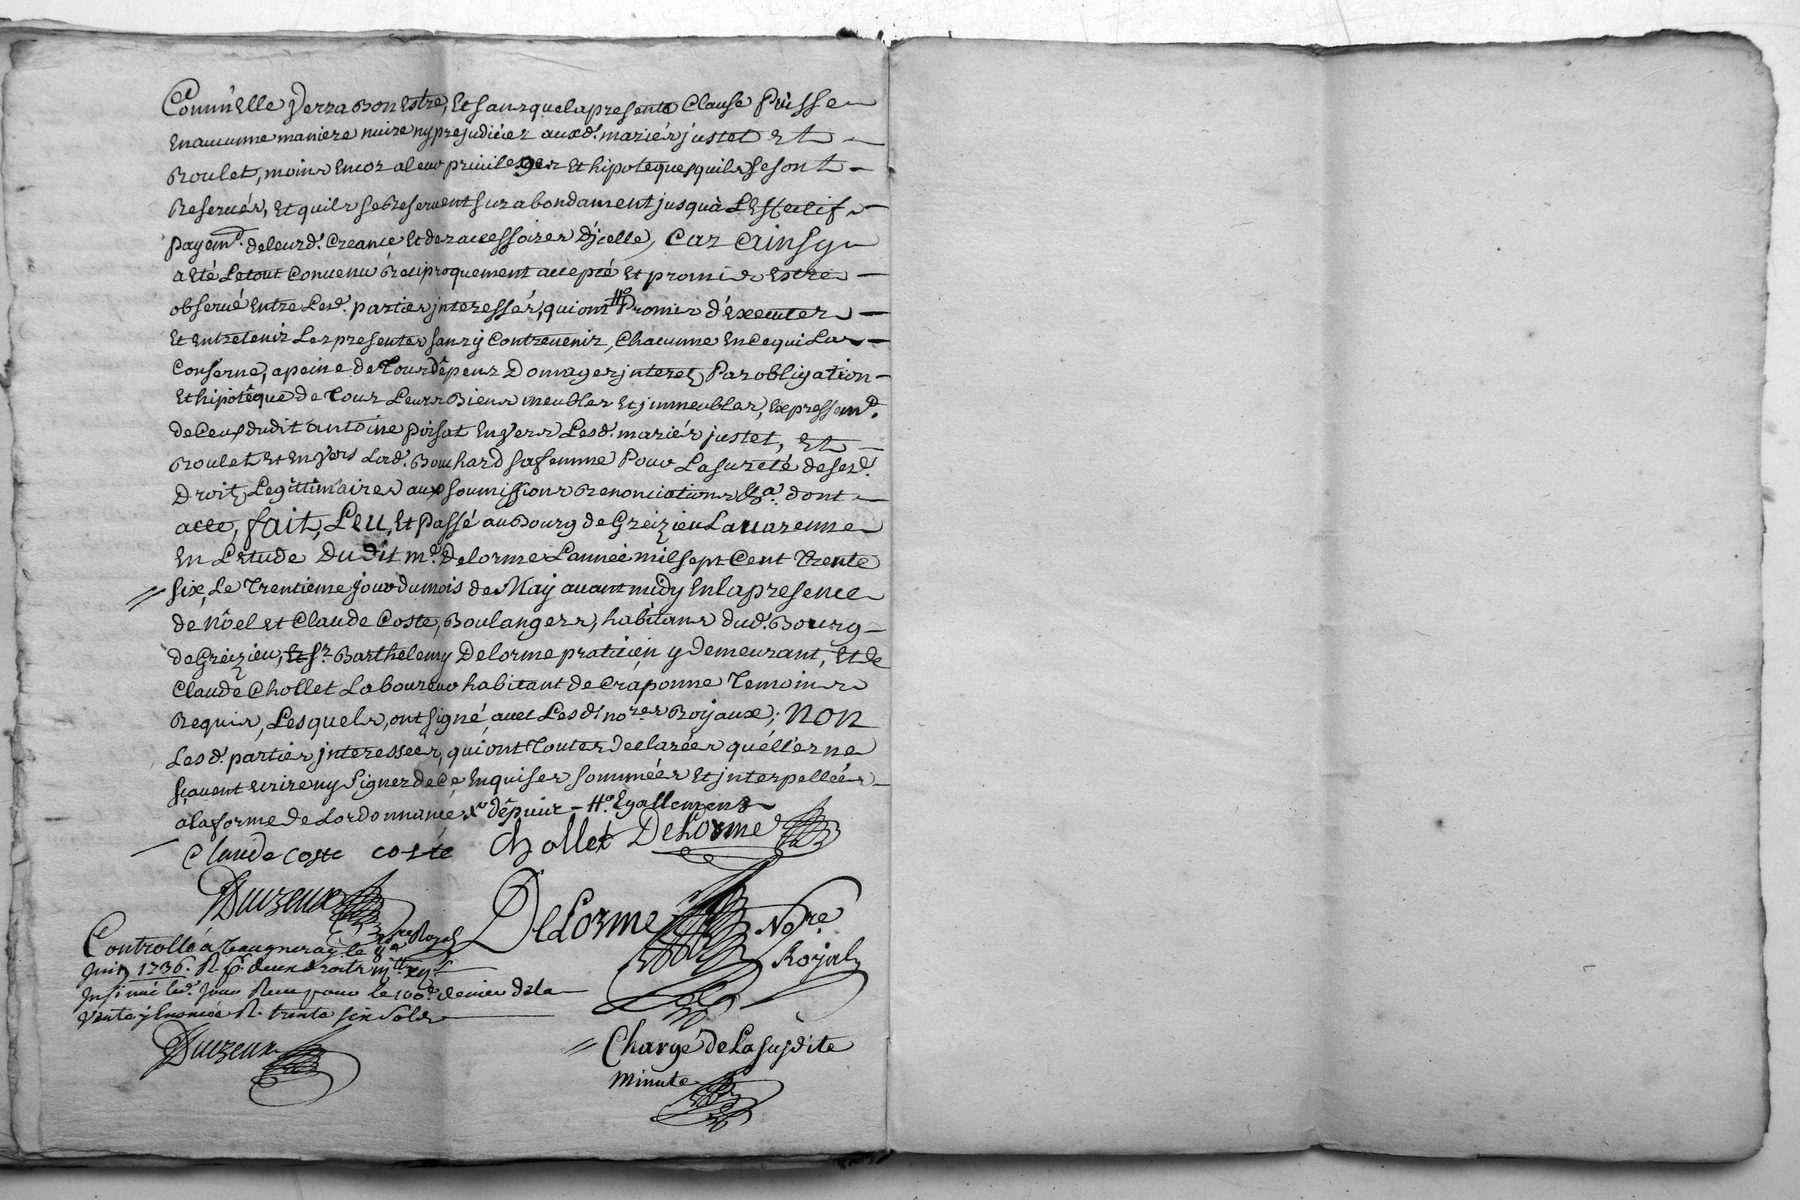 Comm'Elle Verra Bon Estre, Et sans que la presente Clause Puisse
En aucune maniere nuire ny prejudicier auxd. mariés justet Et
Roulet, moins Encor a leur privileges Et hipoteques quils se sont
Reservés, Et quils se Reservent surabondament jusquà L'Effectif
payem.t de leurd. Creance Et des accessoires d'jcelle, Car Ainsy
a Eté Le tout Convenu Reciproquement accepté Et promis Estre
observé Entre Lesd. parties jnteressés, qui ont # Promis d'Executer
Et Entretenir Les presentes sans y Contrevenir, Chacunne En Ce qui Les
Conserne, a peine de Tous dêpens Domages jnterets Par obligation
Et hipotêque de Tous Leurs Biens meubles Et jmmeubles, Expressem.t
de Ceux dudit antoine poisat Envers Lesd. mariés justet, Et
Roulet Et Envers Lad. Bouchard sa femme Pour La sureté de sesd.
Droits Legitimaires aux soumissions Renonciations &a. dont
acte, fait, Leu, Et Passé au Bourg de Greizieu Lavarenne
En L'etude Du dit m.e Delorme L'année mil sept Cent Trente
six, Le Trentieme jour du mois de May avant midy En la presence
de Nôel Et Claude Coste, Boulangers, habitans dud. Bourg
de Greizieu, Et s.r Barthelemy Delorme praticien y Demeurant, Et de
Claude Chollet Laboureur habitant de Craponne Temoins
Requis, Lesquels, ont signé, avec Lesd. no.res Royaux; Non
Lesd. parties jnteressées, qui ont Toutes declarées qu'elles ne
sçavent Ecrire ny signer de Ce Enquises sommées Et jnterpellées
a la forme de L'ordonnance, #o Egallement
Claude Coste Coste Chollet DeLorme
DeLorme No.re
Royal
Controllé à Vaugneray le 8e
Juin 1736. R
Insinué led. Jour Reçu pour le 100.e denier de la
Vente y Enoncée R. trente six Sols
Chargé de La susdite
Minute